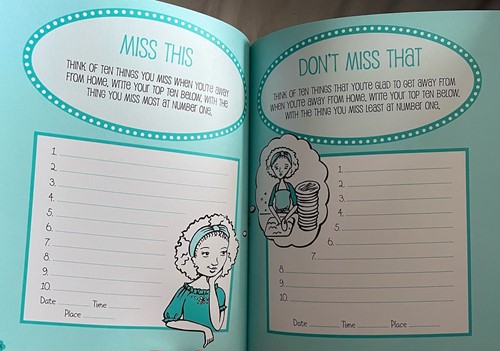 MISS THIS
THINK OF TEN THINGS YOU MISS WHEN YOU'RE AWAY
FROM HOME. WRITE YOUR TOP TEN BELOW, WITH THE
THING YOU MISS MOST AT NUMBER ONE.
1.
2.
3.
4.
5.
6.
7.
8.
9.
10.
Date Time
Place
DON'T MISS THAT
THINK OF TEN THINGS THAT YOU'RE GLAD TO GET AWAY FROM
WHEN YOU'RE AWAY FROM HOME. WRITE YOUR TOP TEN BELOW,
WITH THE THING YOU MISS LEAST AT NUMBER ONE.
1.
2.
3.
4.
5.
6.
7.
8.
9.
10.
Date Time Place